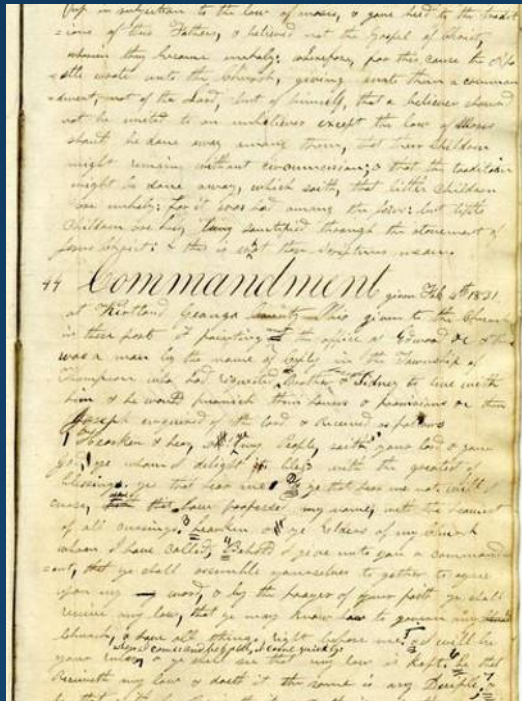 up in subjection to the law of moses, & gave heed to the tradit
=ions of their Fathers, & believed not the Gospel of Christ,
wherein they became unholy; wherefore, for this cause the Apo
stle wrote unto the Church, giving unto them a command
=dment, not of the Lord, but of himself, that a believer should
not be united to an unbeliever except the law of Moses
should be done away among them, that their children
might remain without circumcision; & that the tradition
might be done away, which saith, that little children
are unholy; for it was had among the Jews; but little
children are holy being sanctified through the atonement of
Jesus Christ; & this is what these scriptures mean.
44 Commandment given Feb 4th 1831
at Kirtland Geauga given to the Church
in these part the office of Edward &c & there
was a man by the name of in the Township of
Thompson who had requested Brother & Sidney to live with
him & he would furnish them houses & provisions &c then
Joseph enquired of the lord & Received as follows
Hearken & hear, O ye my People, saith your lord & your
God, ye whom I delight to bless with the greatest of
blessings, ye that hear me & ye that hear me not will I
curse, that have professed my name, with the heaviest
of all cursings. 3 hearken O ye Elders of my Church
whom I have called, 4 Behold I give unto you a commandm
=ent, that ye shall assemble yourselves to gether to agree
upon my word, & by the prayer of your faith ye shall
receive my law, that ye may know how to govern my
Church, & have all things right before me. 5 & I will be
your ruler, & ye shall see that my law is kept. 6 he that
Receiveth my law & doeth it the same is my Disciple, 7 &